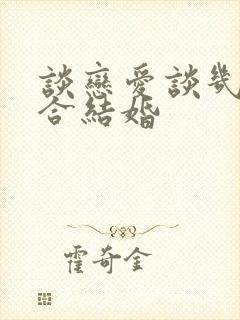 談戀愛談幾
合結婚
霍奇全